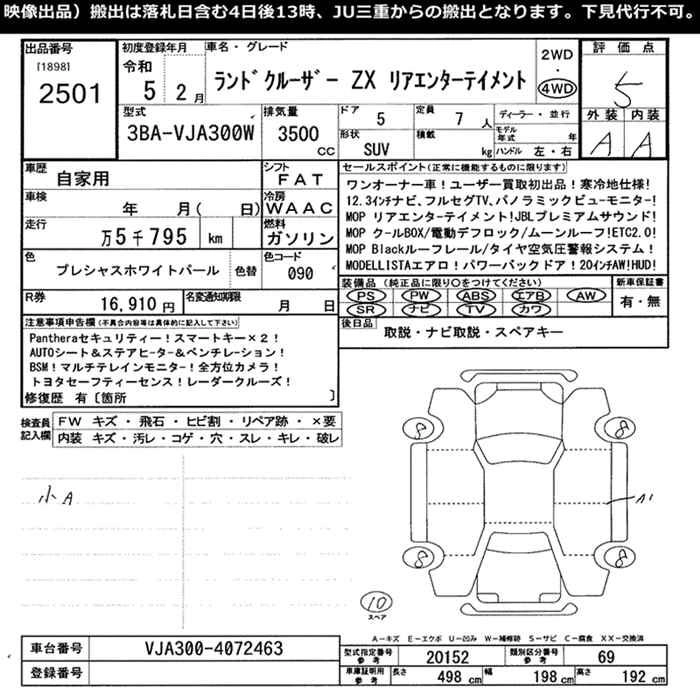 映像出品）搬出は落札日含む4日後13時、JU三重からの搬出となります。下見代行不可。
出品番号
[1898]
2501
初度登録年月
令和
5 2月
車名・グレード
ランドクルーザー ZX リアエンターテイメント
2WD
・
4WD
評価点
5
外装 内装
A A
型式
3BA-VJA300W
排気量
3500
CC
ドア 5
形状 SUV
定員 7 人
積載 kg
ディーラー・並行
モデル年式 年
ハンドル 左・右
車歴
自家用
シフト
FAT
車検
年 月( 日)
冷房
WAAC
走行
万5千795 km
燃料
ガソリン
色
プレシャスホワイトパール
色替
色コード
090
R券
16,910円
名変通知期限
月 日
セールスポイント(正常に機能するものに限ります)
ワンオーナー車！ユーザー買取初出品！寒冷地仕様！
12.3インチナビ、フルセグTV、パノラミックビューモニター！
MOP リアエンターテイメント！JBLプレミアムサウンド！
MOP クールBOX/電動デフロック/ムーンルーフ！ETC2.0！
MOP Blackルーフレール/タイヤ空気圧警報システム！
MODELLISTAエアロ！パワーバックドア！20インチAW!HUD!
装備品 (純正品に限り○をつけてください)
PS PW ABS エアB AW
SR ナビ TV カワ
新車保証書
有・無
後日品
取説・ナビ取説・スペアキー
注意事項申告欄(不具合内容等は具体的に記入して下さい)
Pantheraセキュリティー！スマートキー×2！
AUTOシート＆ステアヒーター＆ベンチレーション！
BSM！マルチテレインモニター！全方位カメラ！
トヨタセーフティーセンス！レーダークルーズ！
修復歴 有〔箇所 〕
検査員記入欄
FW キズ・飛石・ヒビ割・リペア跡・×要
内装 キズ・汚レ・コゲ・穴・スレ・キレ・破レ
小A
8 8
A1
8 8
10
スペア
A－キズ E－エクボ U－凹み W－補修跡 S－サビ C－腐食 XX－交換済
車台番号
VJA300-4072463
登録番号
型式指定番号参考 20152
類別区分番号参考 69
車庫証明用参考 長さ 498 cm 幅 198 cm 高さ 192 cm